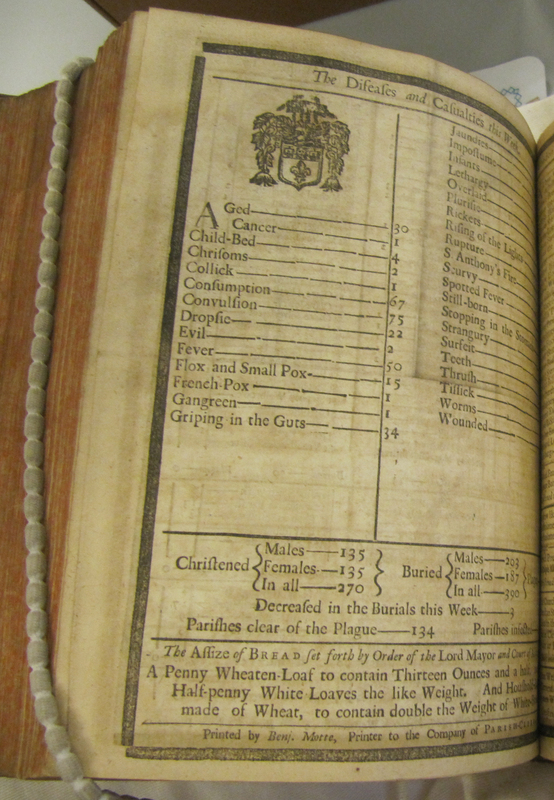 The Diseases and Casualties this Week.
AGed 30
Cancer 1
Child-Bed 4
Chrisoms 2
Collick 1
Consumption 67
Convulsion 75
Dropsie 22
Evil 2
Fever 50
Flox and Small Pox 15
French-Pox 1
Gangreen 1
Griping in the Guts 34
Jaundies
Impostume
Infants
Lethargy
Overlaid
Plurisie
Rickets
Rising of the Lights
Rupture
S Anthony's Fire
Scurvy
Spotted Fever
Still-born
Stopping in the
Strangury
Surfeit
Teeth
Thrush
Tissick
Worms
Wounded
Christened { Males 135 Females 135 In all 270 }
Buried { Males 203 Females 187 In all 390 }
Decreased in the Burials this Week 3
Parishes clear of the Plague 134 Parishes
The Assize of BREAD set forth by Order of the Lord Mayor and Court of
A Penny Wheaten-Loaf to contain Thirteen Ounces and a half,
Half-penny White Loaves the like Weight. And
made of Wheat, to contain double the Weight of
Printed by Benj. Motte, Printer to the Company of